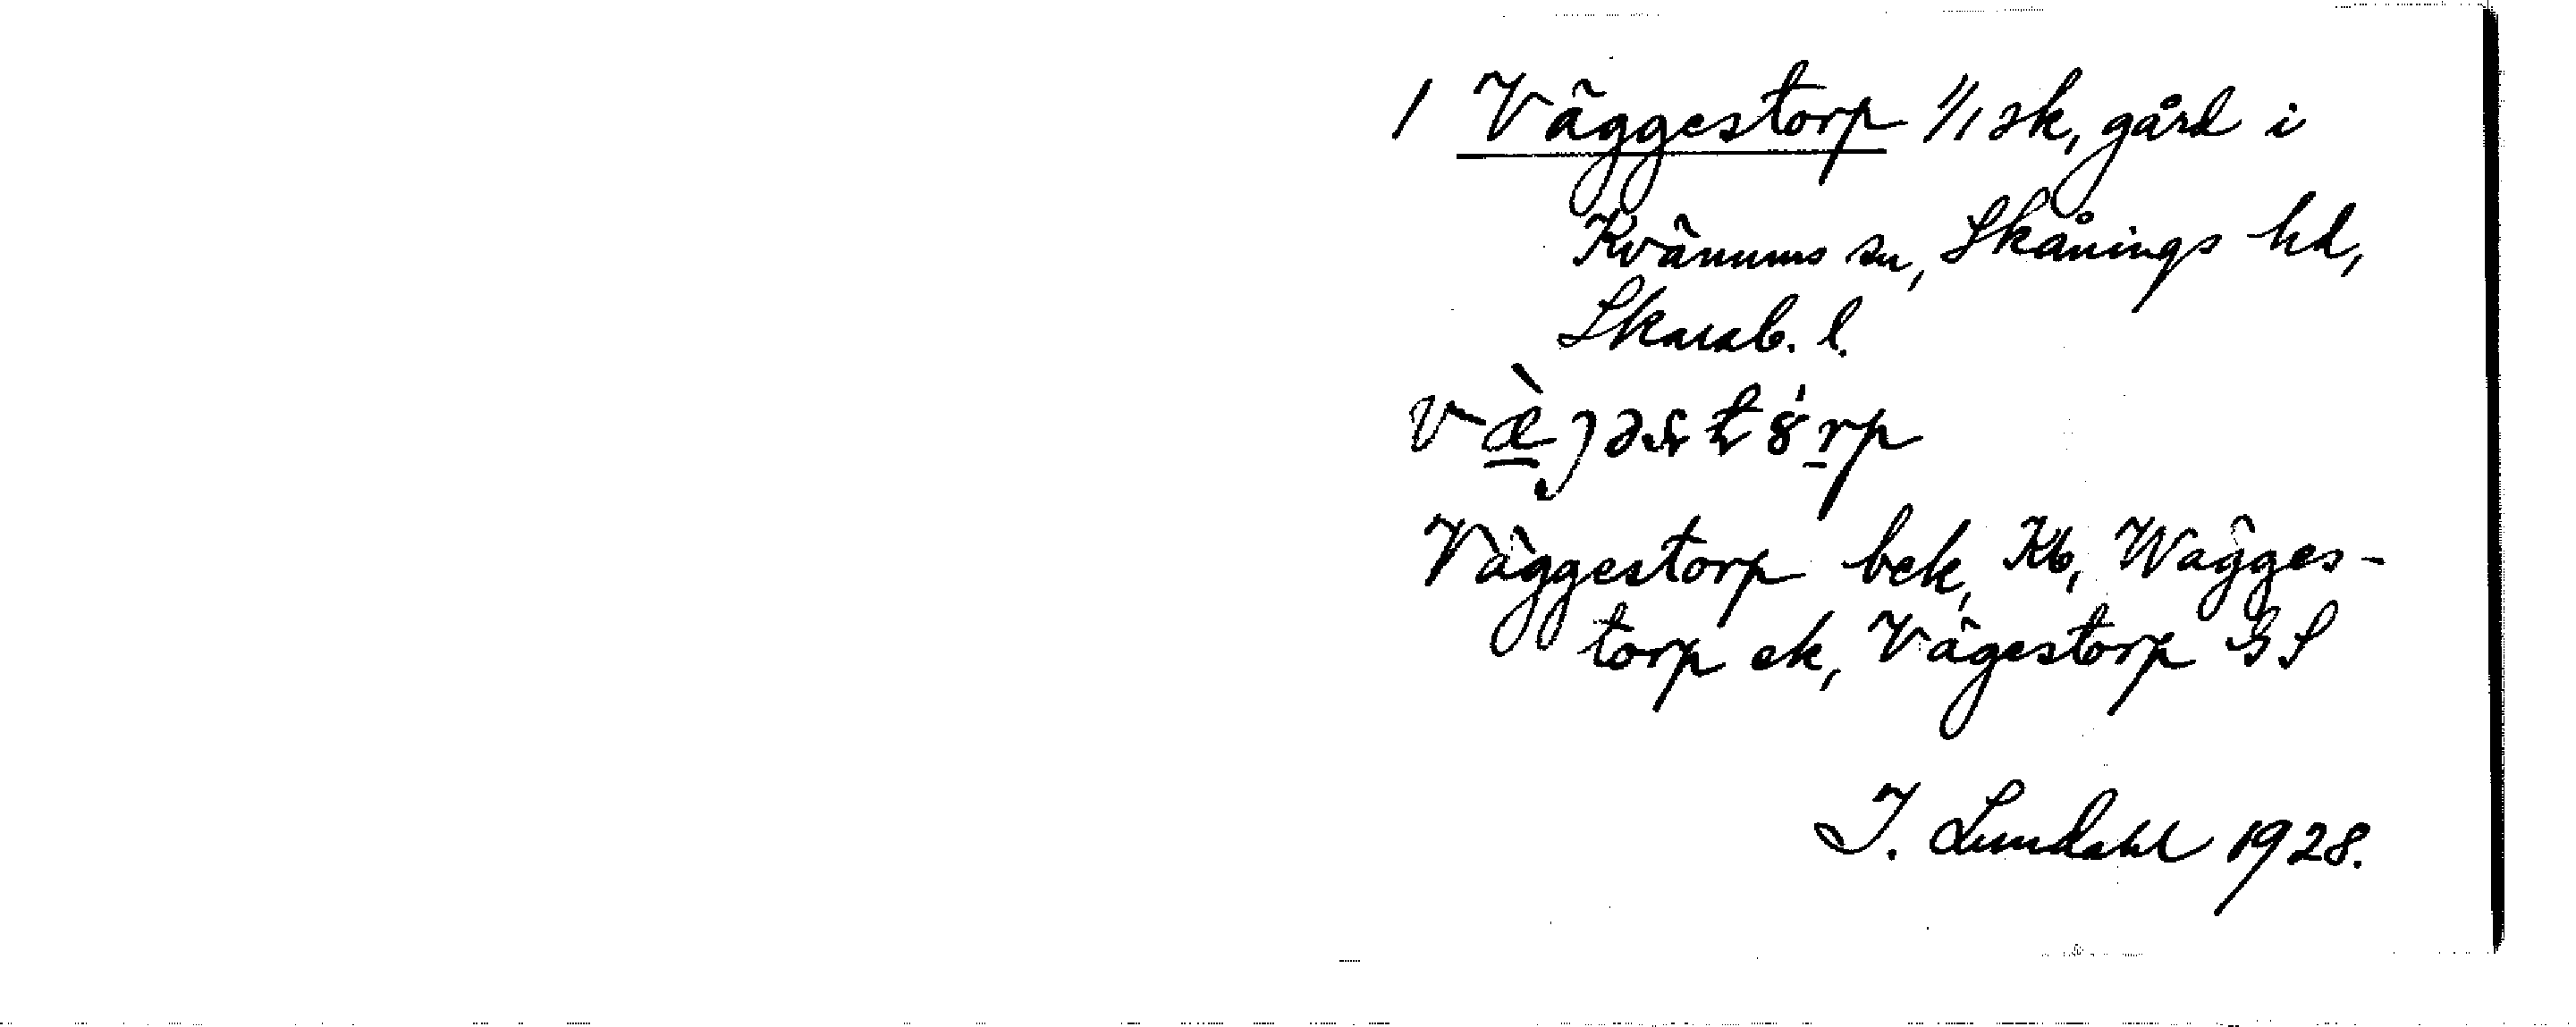 1 Väggestorp 1/1 sk, gård i
Kvänums sn, Skånings hd,
Skarab. l.
Väggestorp bek, Kb, Wägges-
torp ek, Vägestorp GS
I. Lundahl 1928.